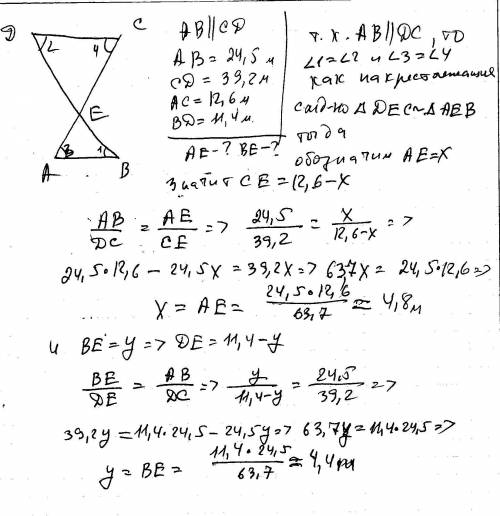 D C
2 4
E
3 1
A B
AB∥CD
AB = 24,5 м
CD = 39,2 м
AC = 12,6 м
BD = 11,4 м.
AE-? BE-?
т.к. AB∥DC, то
∠1=∠2 и ∠3=∠4
как накрестлежащие
след-но Δ DEC ~ Δ AEB
тогда
обозначим AE=x
значит CE = 12,6-x
AB/DC = AE/CE => 24,5/39,2 = x/12,6-x =>
24,5•12,6 - 24,5x = 39,2x => 63,7x = 24,5•12,6 =>
x = AE = 24,5•12,6/63,7 ≈ 4,8 м
и BE = y => DE = 11,4-y
BE/DE = AB/DC => y/11,4-y = 24,5/39,2 =>
39,2y = 11,4•24,5 - 24,5y => 63,7y = 11,4•24,5 =>
y = BE = 11,4•24,5/63,7 ≈ 4,4 м